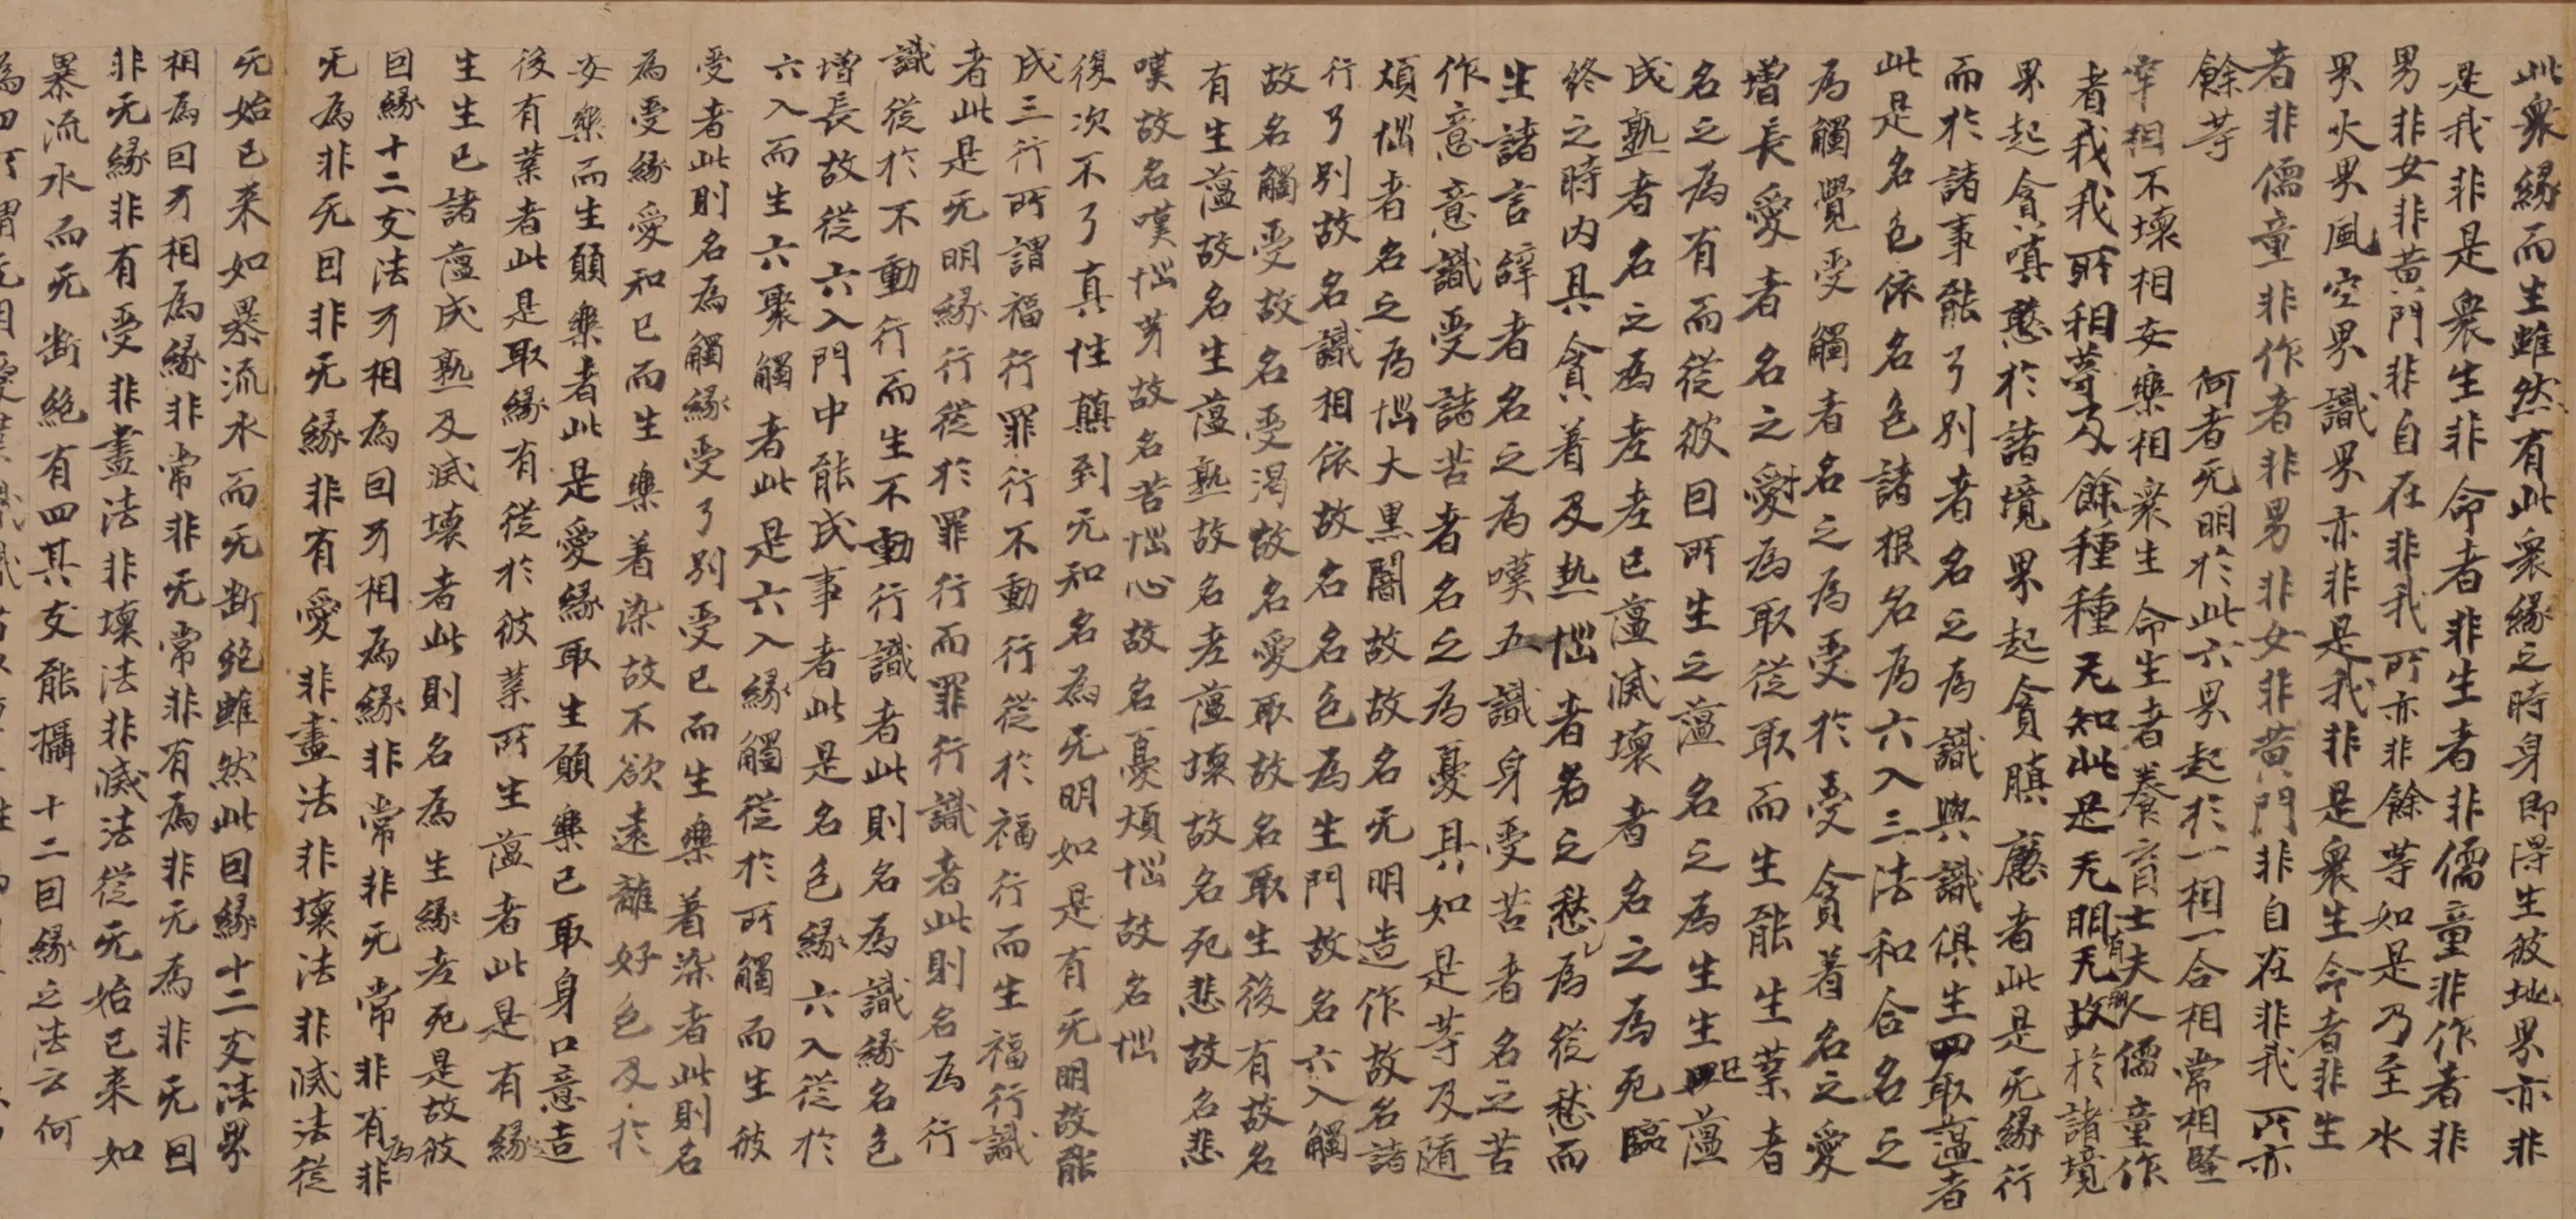 此衆緣而生雖然有此衆緣之時身即得生彼地界亦非
是我非是衆生非命者非生者非儒童非作者非
男非女非黄門非自在非我所亦非餘等如是乃至水
界火界風空界識界亦非是我非是衆生命者非生
者非儒童非作者非男非女非黄門非自在非我所亦
餘等　何者无明於此六界起於一相一合相常相堅
牢相不壞相安樂相衆生命生者養育士夫人儒童作
者我我所相等及餘種種无知此是无明有无明故於諸境
界起貪嗔愚於諸境界起貪瞋癡者此是无緣行
而於諸事能了別者名之為識與識俱生四取蘊者
此是名色依名色諸根名為六入三法和合名之
為觸覺受觸者名之為受於受貪著名之愛
增長愛者名之為取從取而生能生業者
名之為有而從彼因所生之蘊名之為生生已蘊
成熟者名之為老老已蘊滅壞者名之為死臨
終之時内具貪着及熱惱者名之愁為從愁而
生諸言辞者名之為嘆五識身受苦者名之苦
作意意識受諸苦者名之為憂具如是等及随
煩惱者名之為惱大黑闇故故名无明造作故名諸
行了別故名識相依故名名色為生門故名六入觸
故名觸受故名受渴故名愛取故名取生後有故名
有生蘊故名生蘊熟故名老蘊壞故名死悲故名悲
嘆故名嘆惱身故名苦惱心故名憂煩惱故名惱
復次不了真性顛到无知名為无明如是有无明故能
成三行所謂福行罪行不動行從於福行而生福行識
者此是无明緣行從於罪行而罪行識者此則名為行
識從於不動行而生不動行識者此則名為識緣名色
增長故從六入門中能成事者此是名色緣六入從於
六入而生六聚觸者此是六入緣觸從於所觸而生彼
受者此則名為觸緣受了別受已而生樂著染者此則名
為受緣愛和已而生樂著染故不欲遠離好色及於
安樂而生願樂者此是愛緣取生願樂已取身口意造
後有業者此是取緣有從於彼業所生蘊者此是有緣
生生已諸蘊成熟及滅壞者此則名為生緣老死是故彼
因緣十二支法牙相為因牙相為緣非常非无常非有為非
无為非无因非无緣非有愛非盡法非壞法非滅法從
无始已来如暴流水而无断絶雖然此因緣十二支法界
相為因牙相為緣非常非无常非有為非无為非无因
非无緣非有受非盡法非壞法非滅法從无始已来如
暴流水而无断絶有四其支能攝十二因緣之法云何